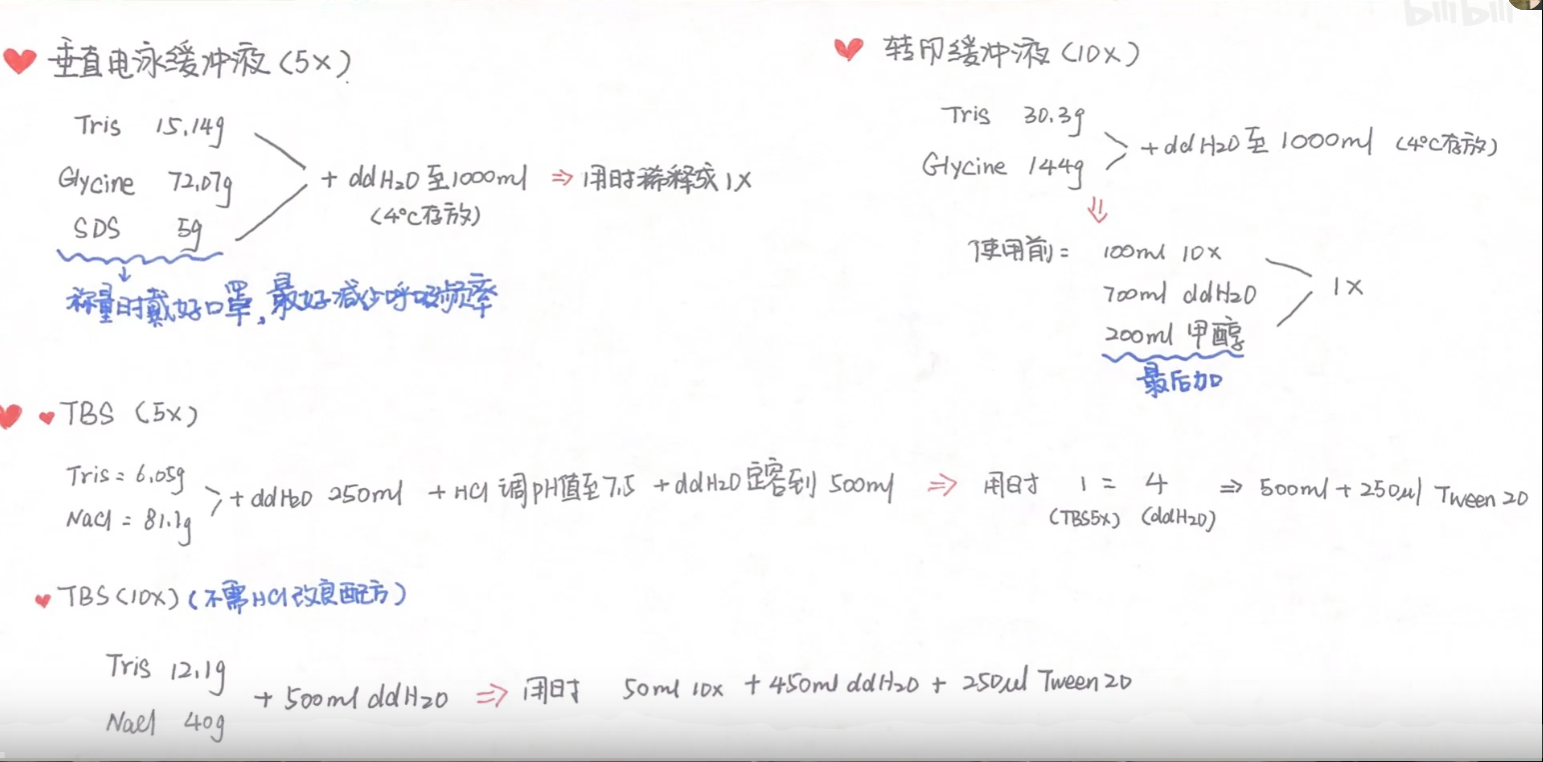 bilibili
垂直电泳缓冲液(5×)
Tris 15.14g
Glycine 72.07g
SDS 5g
+ ddH₂O至1000ml ⇒ 用时稀释成1X
(4℃存放)
称量时戴好口罩,最好减少呼吸频率
转印缓冲液(10×)
Tris 30.3g
Glycine 144g
+ddH₂O至1000ml (4℃存放)
使用前: 100ml 10x
700ml ddH₂O
200ml 甲醇
1X
最后加
TBS (5×)
Tris = 6.05g
NaCl = 81.1g
+ddH₂O 250ml +HCl 调pH值至7.5 +ddH₂O定容到500ml ⇒ 用时 1 = 4 ⇒ 500ml+250μl Tween 20
(TBS5x) (ddH₂O)
TBS(10X)(不需HCl改良配方)
Tris 12.1g
NaCl 40g
+ 500ml ddH₂O ⇒ 用时 50ml 10x + 450ml ddH₂O + 250ul Tween 20